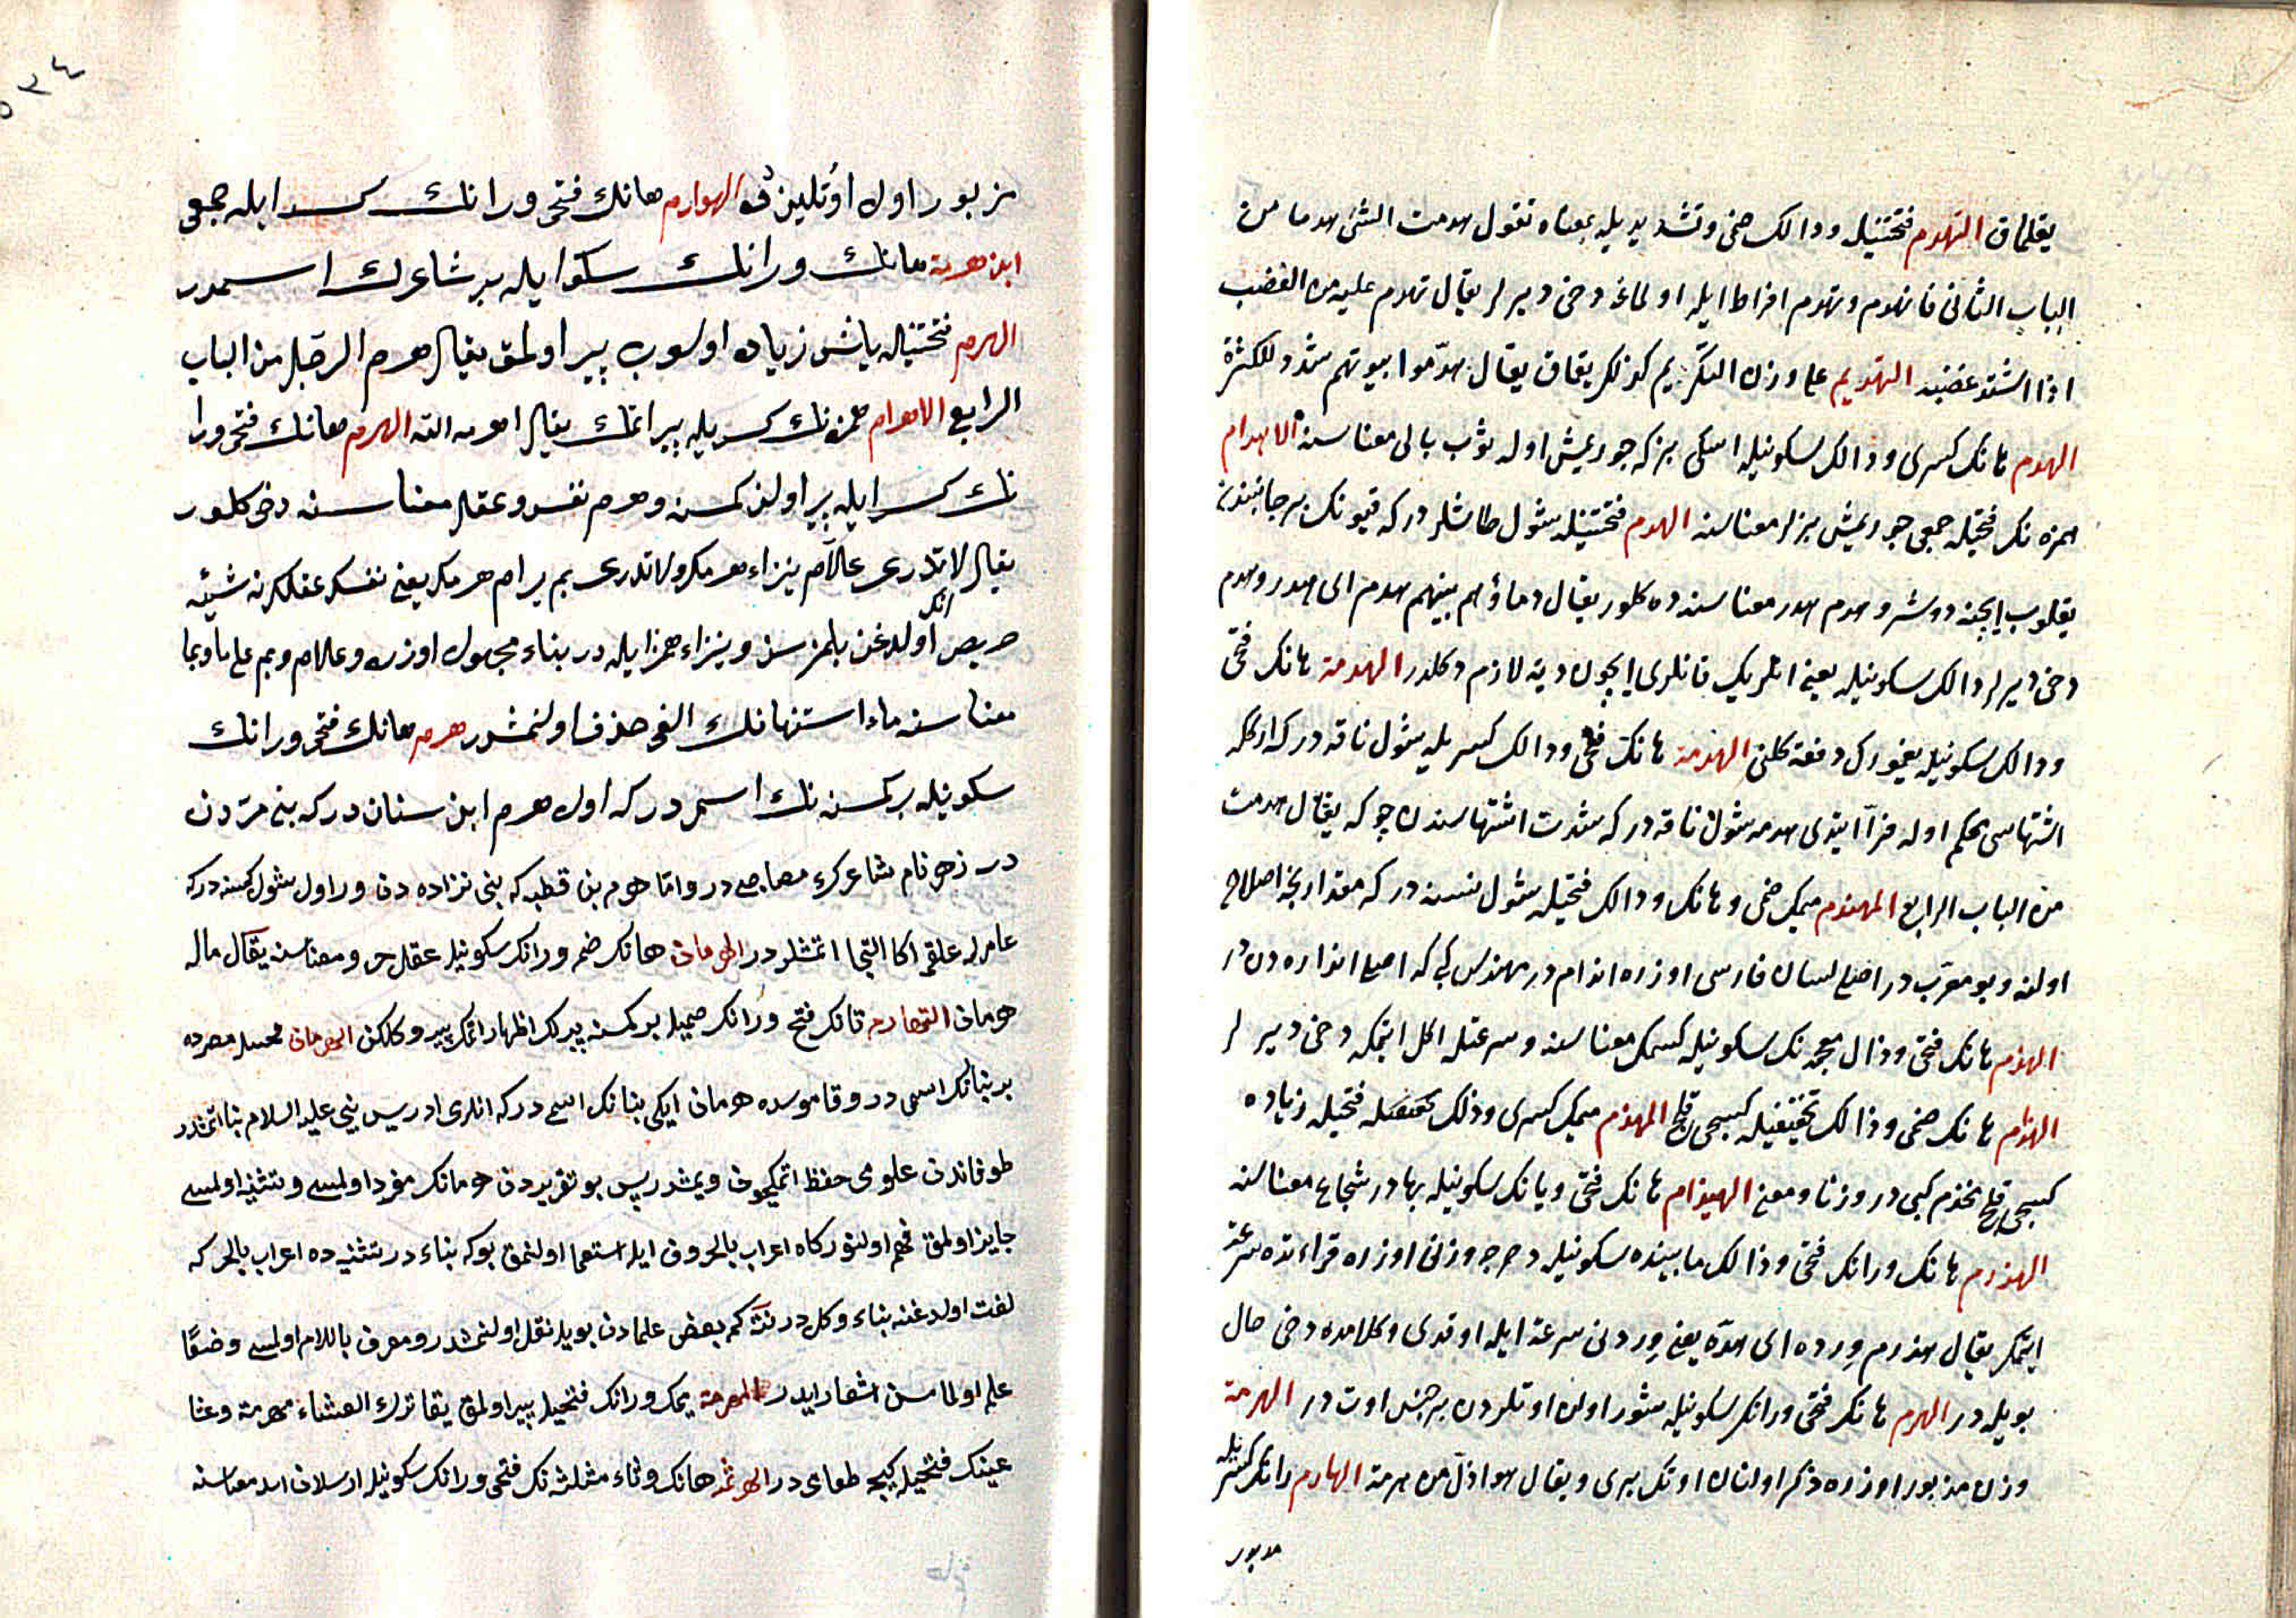 يقلماق التهدم فتحتنيله ودالك ضمى وتشديديله بمعناه تقول هدمت الشئ هدما من
الباب الثانى فانهدم وتهدم افراط ايله اولمغه دخى ديرلر يقال تهدم عليه من الغضب
اذا اشتد غضبه التهديم على وزن التكريم كذلك يقماق يقال هدّموا بيوتهم شدد للكثرة
الهدم هانك كسرى ودالك سكونيله اسكى بز كه جوريمش اوله ثوب بالى معناسنه الاهدام
همزه نك فتحيله جمعى جوريمش بزلر معناسنه الهدم فتحتنيله شول طاشلردر كه قيونك بر جانبندن
يقلوب ايجنه دوشر وهدم هدر معناسنه ده كلور يقال دماؤهم بينهم هدم اى هدر وهدم
دخى ديرلر دالك سكونيله يعنى انلريك قانلرى ايچون ديه لازم دكلدر الهدمة هانك فتحى
ودالك سكونيله يغمورك دفعة كلنى الهدمة هانك فتحى ودالك كسريله شول ناقه در كه اركله
اشتهاسى محكم اوله فرّا ايتدى هدمه شول ناقه در كه شدت اشتهاسندن چوكه يقال هدمت
من الباب الرابع المهندم ميمك ضمى وهانك ودالك فتحيله شول نسنه در كه مقدارنجه اصلاح
اولنه وبو معرّب در اصلى لسان فارسى اوزره اندام در مهندس كبى كه اصلى اندازه دن در
الهذم هانك فتحى وذال معجمه نك سكونيله كسمك معناسنه وسرعتله اكل ايتمكه دخى ديرلر
الهذام هانك ضمى وذالك تخفيفيله كسيجى قلج المهذم ميمك كسرى وذالك فتحيله زياده
كسيجى قلج مخذم كبى در وزنا ومعنى الهيذام هانك فتحى ويانك سكونيله بهادر شجاع معناسنه
الهذرم هانك ورانك فتحى وذالك مابينده سكونيله دحرج وزنى اوزره قراءتده سرعت
ايتمك يقال هذرم ورده اى هذّه يعنى وردنى سرعة ايله اوقدى وكلامده دخى حال
بويله در الهرم هانك فتحى ورانك سكونيله شور اولان اوتلردن بر جنس اوت در الهرمة
وزن مزبور اوزره ذكر اولنان اوتك برى ويقال هو اذلّ من هرمة الهارم رانك كسريله
مزبور
مزبور اول اوتلين دوه الهوارم هانك فتحى ورانك كسرايله جمعى
ابن هرمة هانك ورانك سكونايله بر شاعرك اسميدر
الهرم فتحتنيله ياشى زياده اولوب پير اولمق يقال هرم الرجل من الباب
الرابع الاهرام همزه نك كسريله پير اتمك يقال اهرمه الله الهرم هانك فتحى ورا
نك كسرايله پير اولان كمسنه وهرم نفس وعقل معناسنه دخى كلور
يقال لاتدرى علام ينزاء هرمك ولاتدرى بم يرام هرمك يعنى نفسك عقلك نه شيئه
حريص اولدغن بلمزسن وينزاء همزايله در بناء مجهول اوزره وعلام وبم على ما وبما
معناسنه ماء استفهامك الفى حذف اولنمشدر هرم هانك فتحى ورانك
سكونيله بر كمسنه نك اسمدر كه اول هرم ابن سنان در كه بنى مرّه دن
در زهير نام شاعرك مصاحبى در واما هرم بن قطبه كه بنى فزاره دن در اول شول كمسنه در كه
عامرله علقمه اكا التجا اتمشلردر الهرمان هانك ضمى ورانك سكونيله عقل معناسنه يقال ماله
هرمان التهارم تانك فتحى ورانك ضميله بر كمسنه پيرلك اظهار اتمك پير دكلكن الهرمان مصرده
بر بنانك اسمى در وقاموسده هرمان ايكى بنانك اسمى در كه انلرى ادريس نبى عليه السلام بنا اتمشدر
طوفاندن علومى حفظ اتمكيچون ديمشدر پس بو تقريردن هرمانك مفرد اولمسى وتثنيه اولمسى
جايز اولمق فهم اولنور كاه اعراب بالحروف ايله استعمال اولنمق بوكه بناء در تثنيه ده اعراب بالحركه
لغت اولدغنه بناء دكلدر نته كم بعض علمادن بويله نقل اولنمشدر ومعرف باللام اولمسى وضعًا
علم اولمامسن اشعار ايدر المهرمة ميمك ورانك فتحيله پير اولمق يقال ترك العشاء مهرمة وعشا
عينك فتحيله كيجه طعامى در الهرثمه هانك وثاء مثلثه نك فتحى ورانك سكونيله ارسلان اسد معناسنه